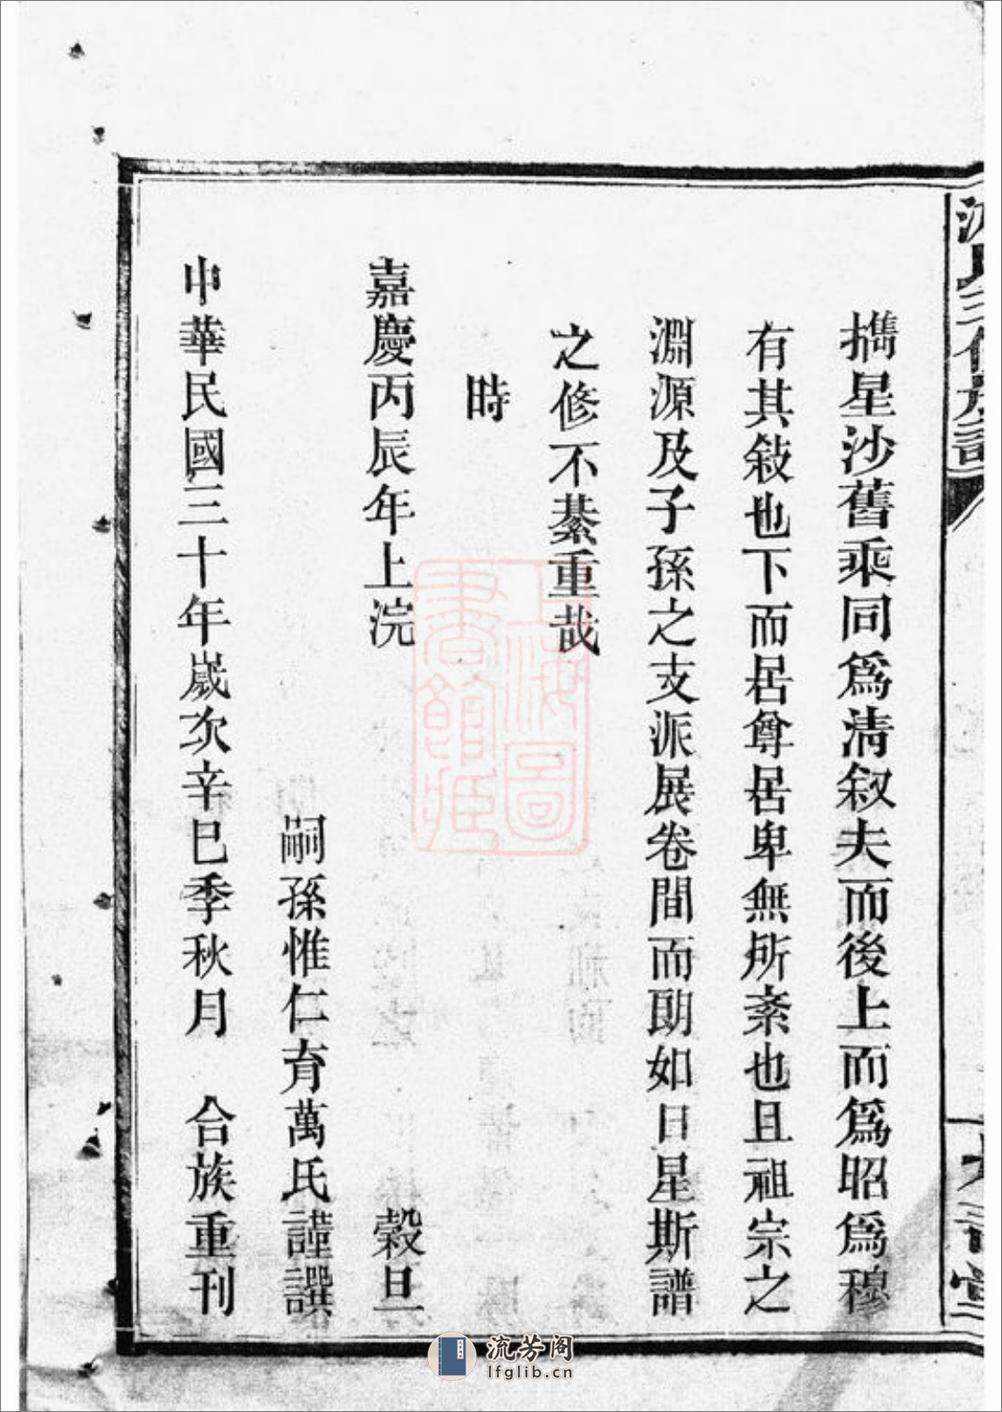 擕星沙舊乘同爲清叙夫而後上而爲昭爲穆
有其敍也下而居尊居卑無所紊也且祖宗之
淵源及子孫之支派展卷間而朗如日星斯譜
之修不綦重哉
時
嘉慶丙辰年上浣　穀旦
嗣孫惟仁育萬氏謹譔
中華民國三十年嵗次辛巳季秋月　合族重刊
上海圖書館藏
流芳阁
lfglib.cn